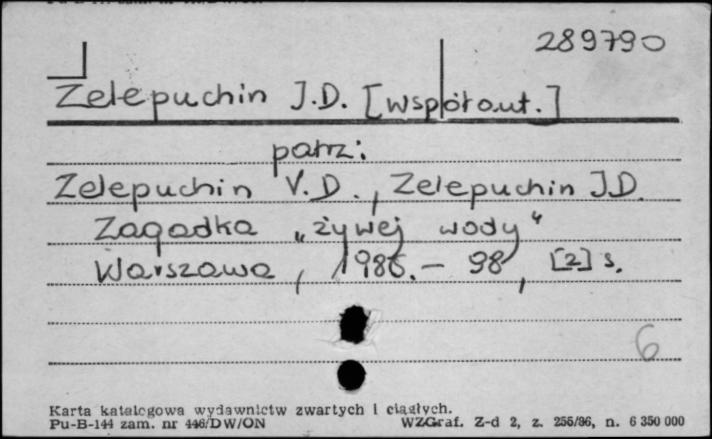 289790
Zelepuchin J.D. [współaut.]
patrz:
Zelepuchin V.D., Zelepuchin J.D.
Zagadka „żywej wody"
Warszawa, 1986. – 98, [2] s.
6
Karta katalogowa wydawnictw zwartych i ciągłych.
Pu-B-144 zam. nr 446/DW/ON WZGraf. Z-d 2, z. 256/86, n. 6 350 000